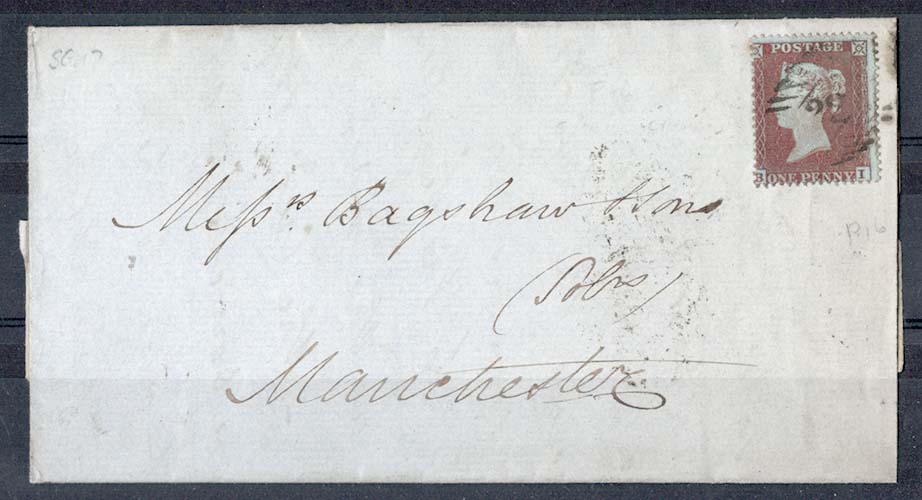 SG 17
POSTAGE
B ONE PENNY I
Messrs. Bagshaw & Sons
(Solrs)
Manchester